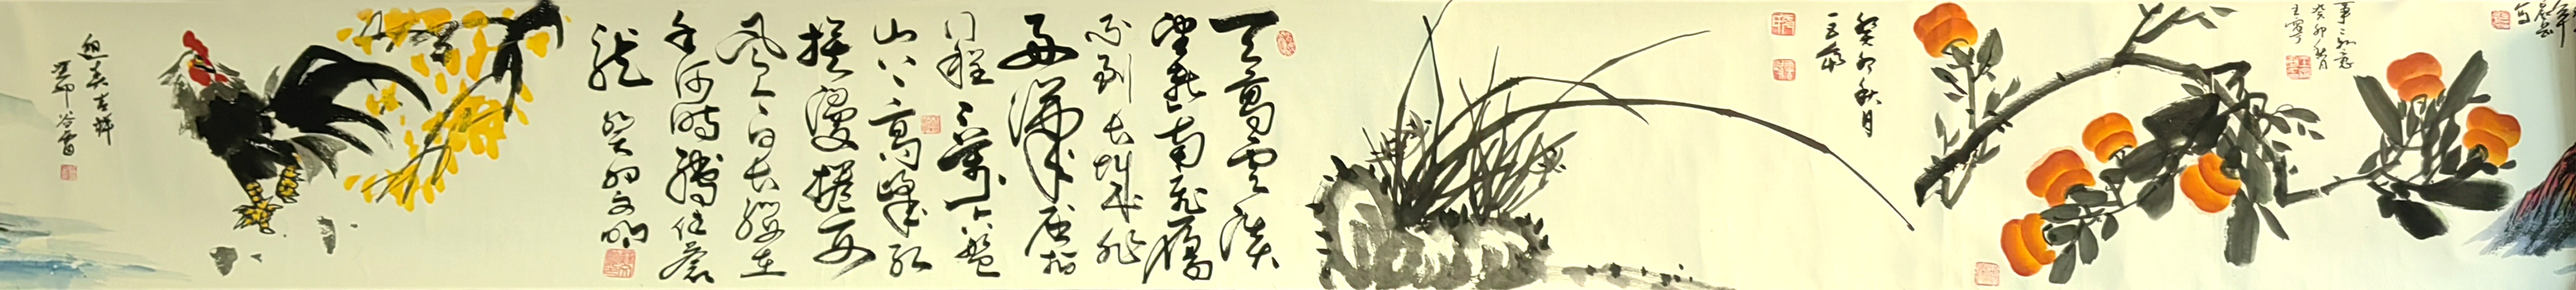 事事如意
癸卯秋月
癸卯秋月
天高雲淡
望斷南飛雁
不到長城非
好漢屈指
行程二萬六盤
山上高峰紅
旗漫捲西
風今日長纓在
手何時縛住蒼
龍 癸卯
吉祥
癸卯